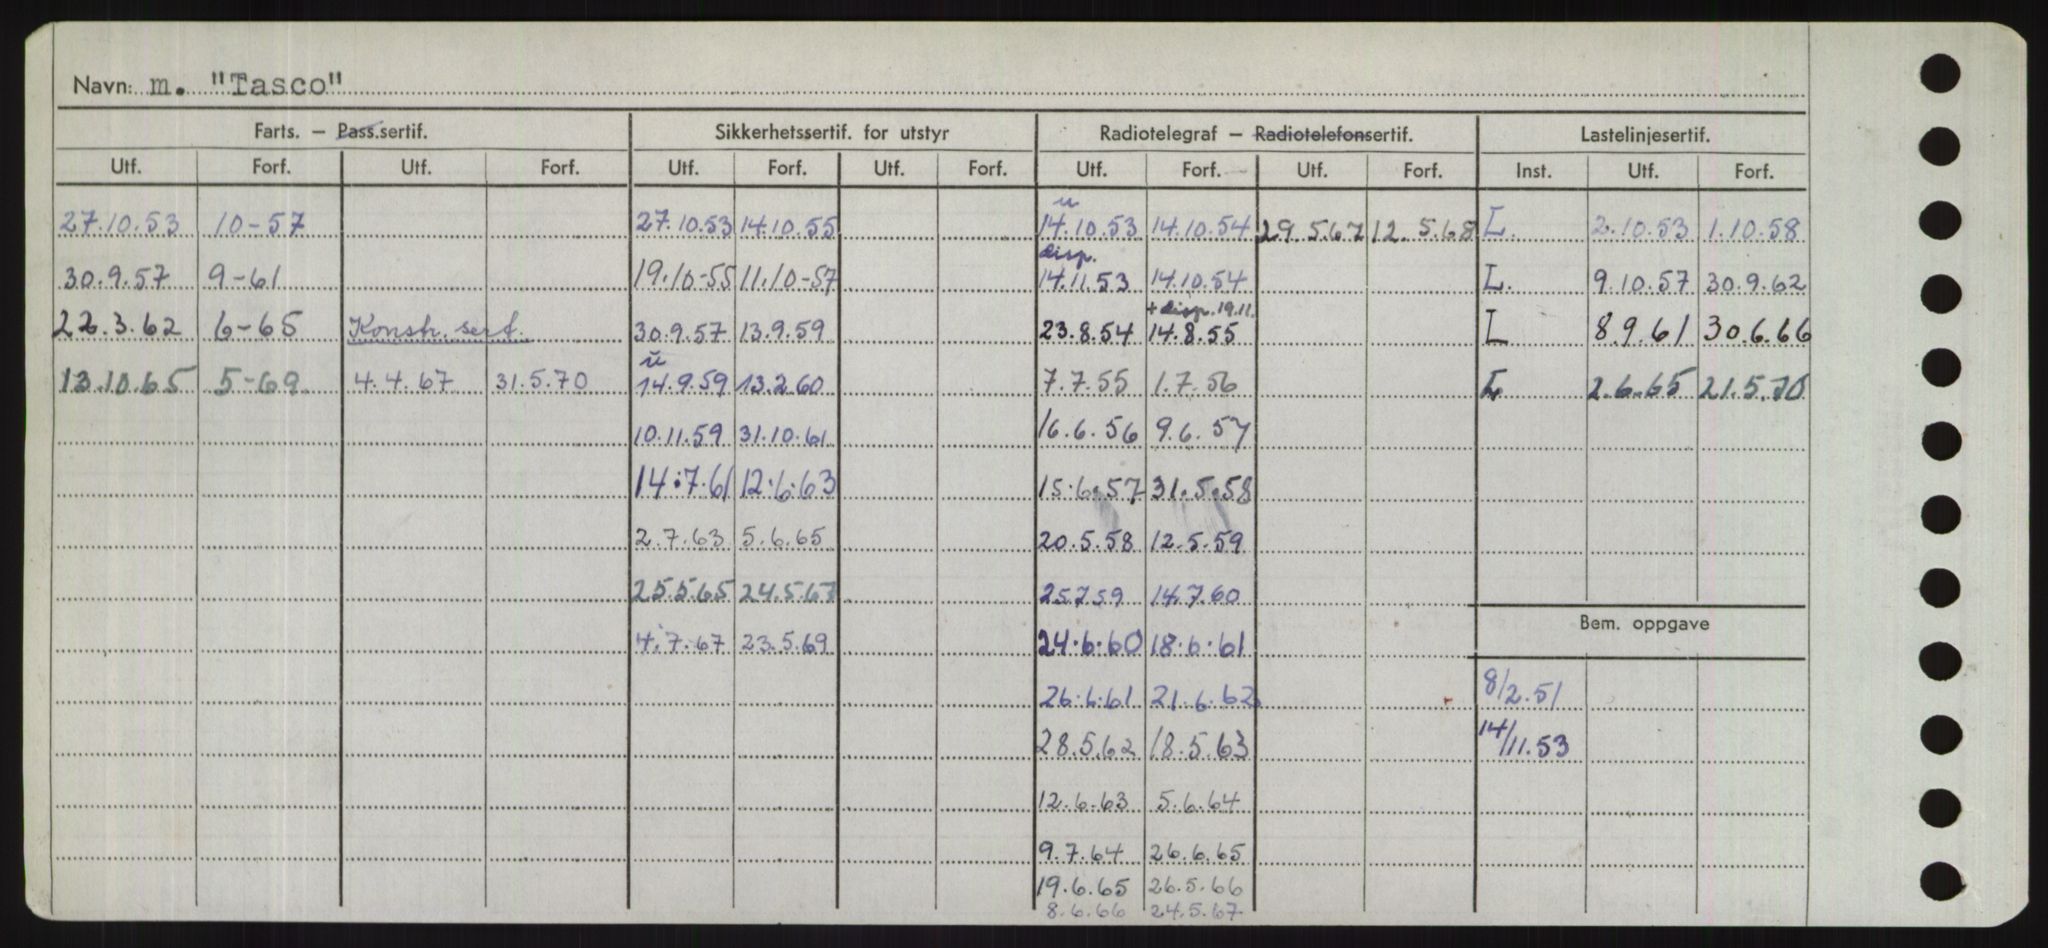 Navn: m. "Tasco"
Farts. – Pass.sertif. Sikkerhetssertif. for utstyr Radiotelegraf – Radiotelefonsertif. Lastelinjesertif.
Utf. Forf. Utf. Forf. Utf. Forf. Utf. Forf. Utf. Forf. Utf. Forf. Inst. Utf. Forf.
u
27.10.53 10-57 27.10.53 14.10.55 14.10.53 14.10.54 29.5.67 12.5.68 L. 2.10.53 1.10.58
disp.
30.9.57 9-61 19.10-55 11.10-57 14.11.53 14.10.54 L. 9.10.57 30.9.62
+ disp. 19.11.
22.3.62 6-65 Konstr. sert. 30.9.57 13.9.59 23.8.54 14.8.55 L 8.9.61 30.6.66
u
13.10.65 5-69 4.4.67 31.5.70 14.9.59 13.2.60 7.7.55 1.7.56 L 2.6.65 21.5.70
10.11.59 31.10.61 16.6.56 9.6.57
14.7.61 12.6.63 15.6.57 31.5.58
2.7.63 5.6.65 20.5.58 12.5.59
25.5.65 24.5.67 25.7.59 14.7.60
Bem. oppgave
4.7.67 23.5.69 24.6.60 18.6.61
26.6.61 21.6.62 8/2.51
28.5.62 18.5.63 14/11.53
12.6.63 5.6.64
9.7.64 26.6.65
19.6.65 26.5.66
8.6.66 24.5.67